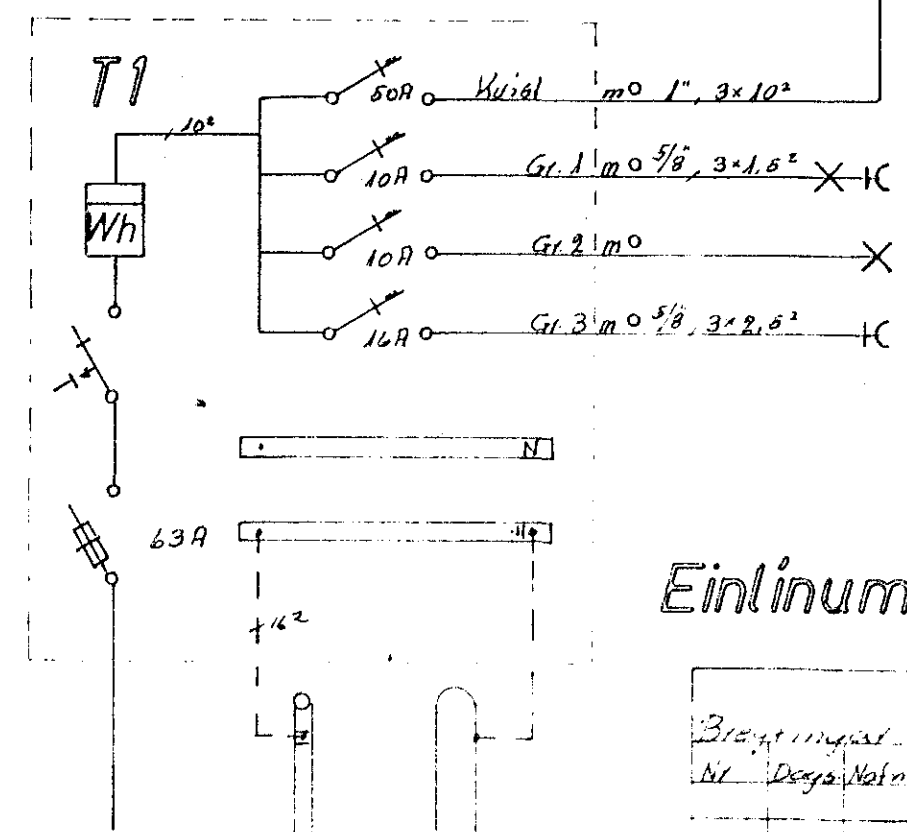 T1
50A Kvísl mo 1", 3×10²
10²
10A Gr. 1 mo 5/8", 3×1,5²
Wh
10A Gr. 2 mo
16A Gr. 3 mo 5/8", 3×2,5²
N
63A
16²
Einlínum
Breytingar
Nr Dags Nafn